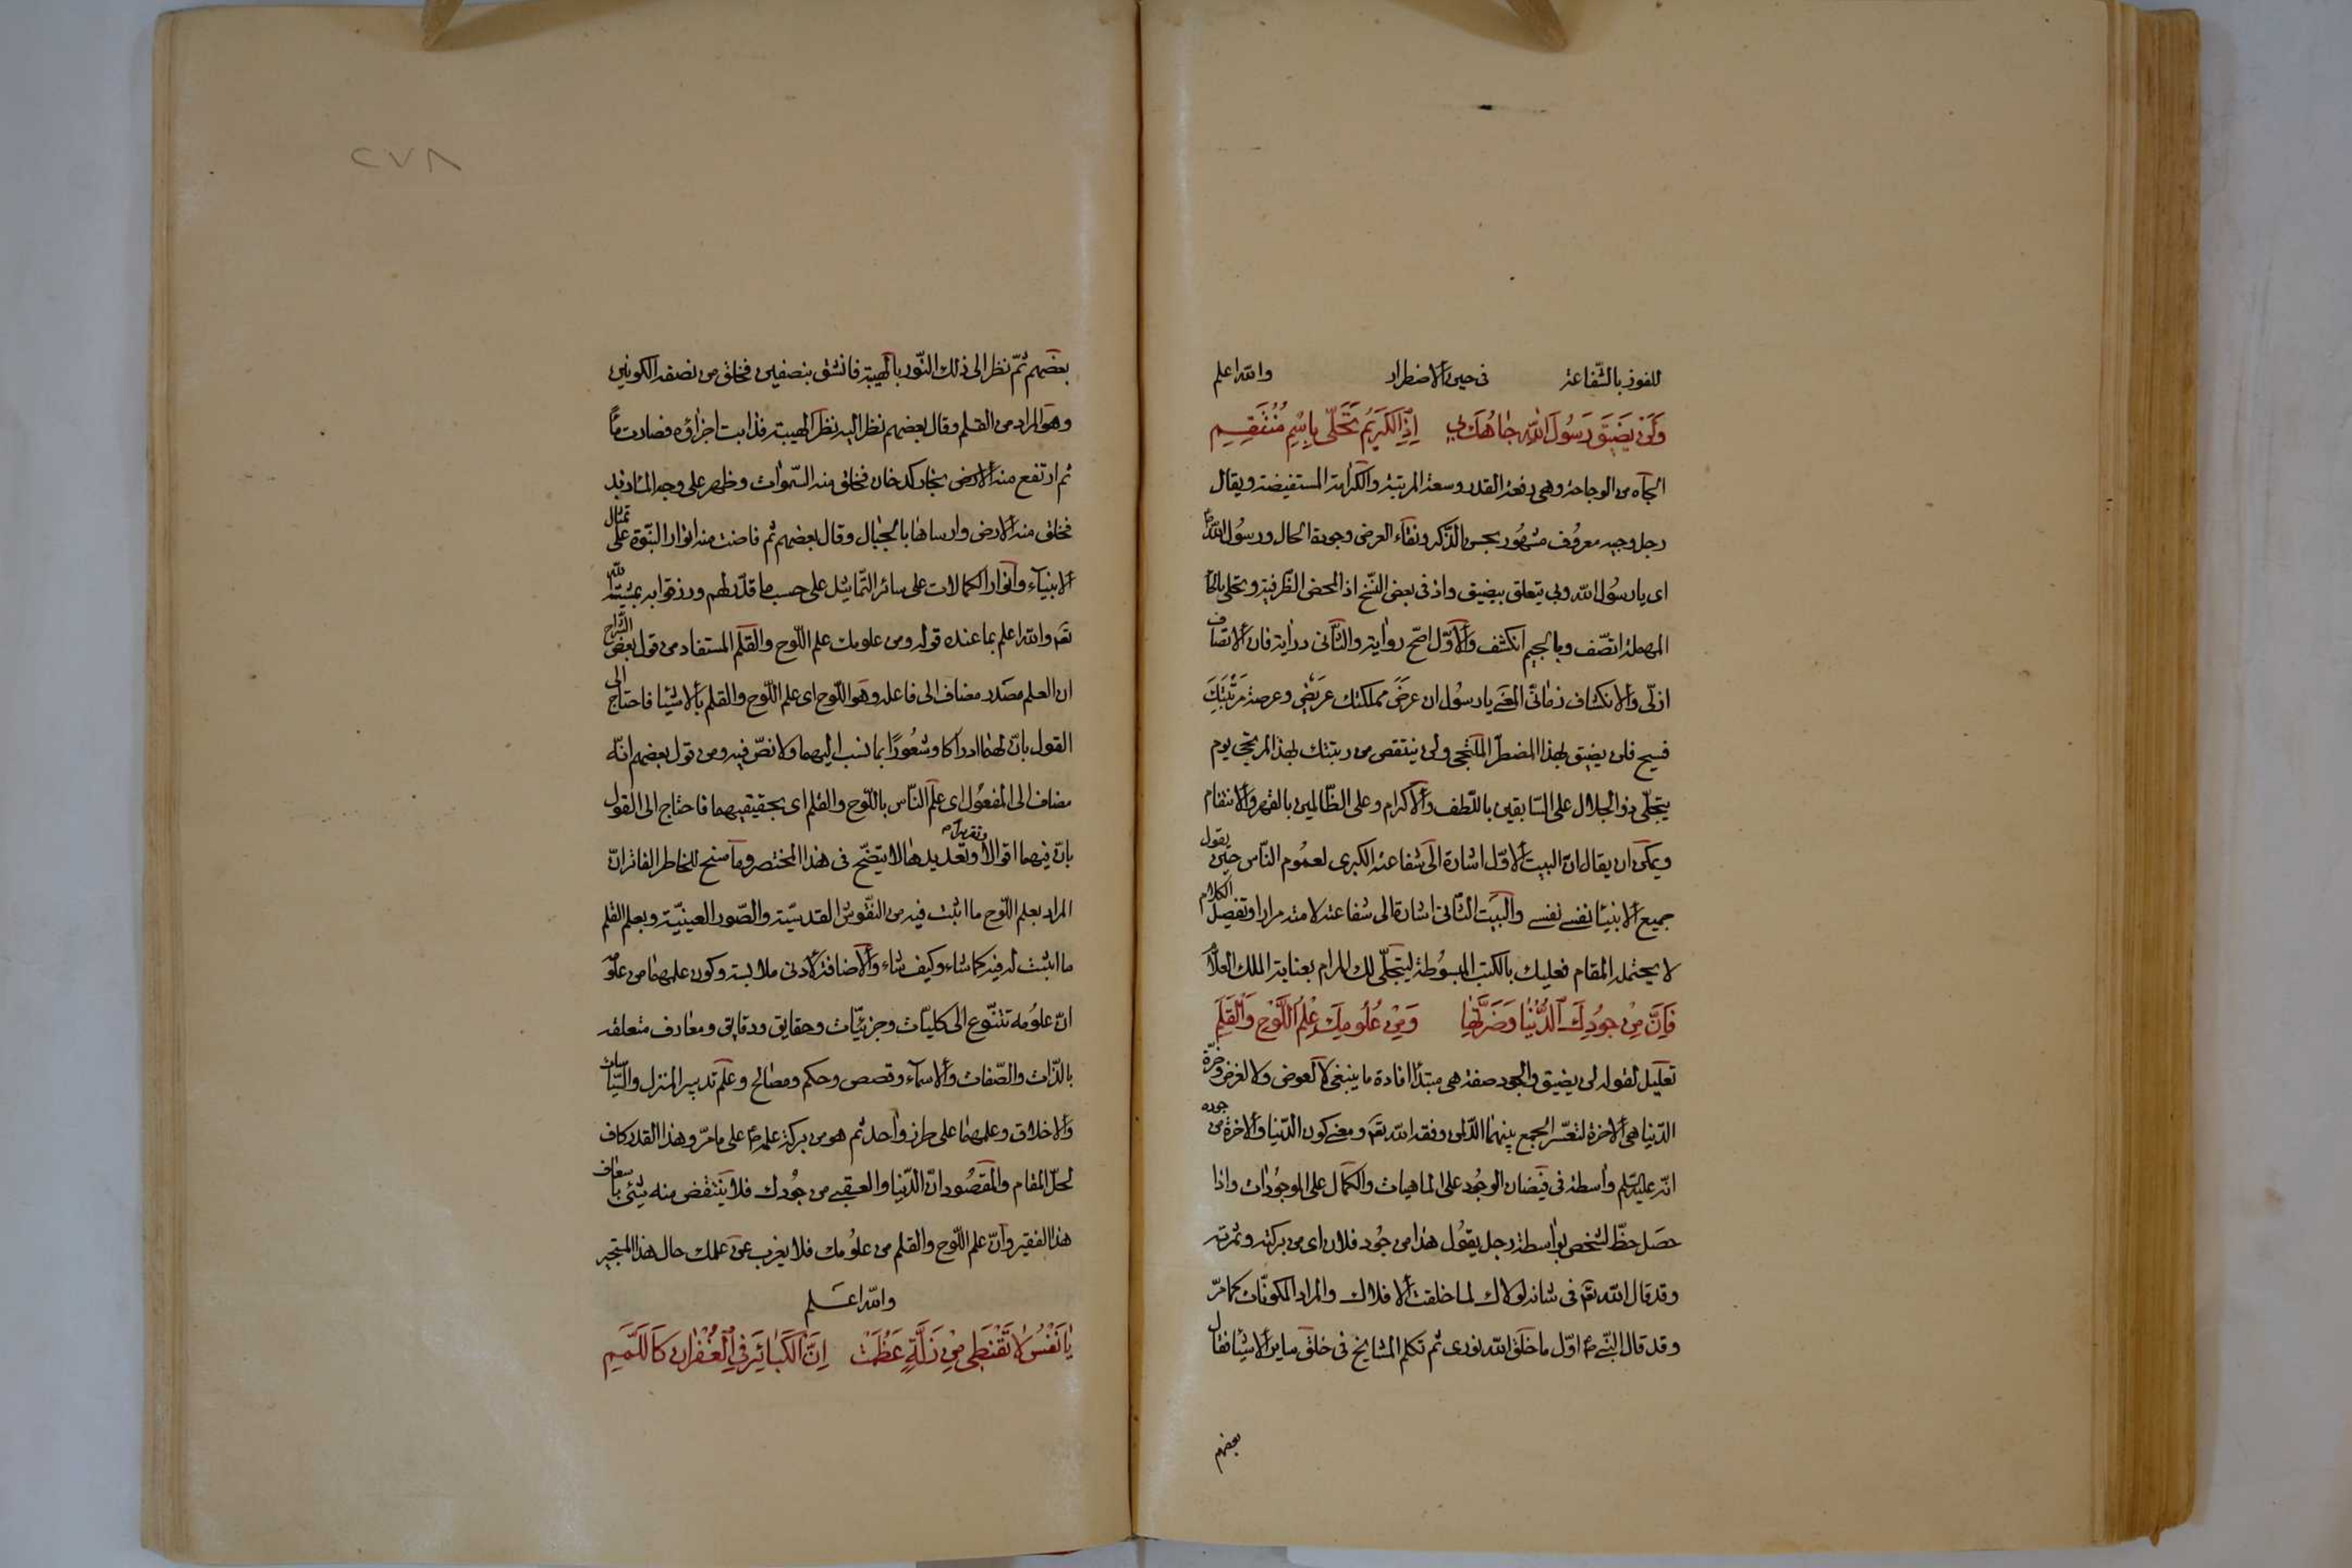 للفوز بالشّفاعة في حين الاضطرار والله اعلم
وَلَنْ يَضِيقَ رَسُولَ اللهِ جَاهُكَ بِي اِذِ الْكَرِيمُ تَحَلّٰى بِاسْمِ مُنْتَقِمِ
الجاه من الوجاهة وهي رفعة القدر وسعة المرتبة والكرامة المستفيضة ويقال
رجل وجيه معروف مشهور بحسن الذّكر ونقاء العرض وجودة الحال ورسول الله
اى يا رسول الله وبي يتعلق بيضيق واذ في بعض النّسخ اذا لمحض الظّرفية وتحلى بالحا
المهملة اتصّف وبالجيم انكشف والاوّل اصحّ رواية والثّانى دراية فان الاتصاف
ازلى والانكشاف زمانّى المعنى يا رسول ان عرض مملكتك عريض وعرصة مرتبتك
فسيح فلن يضيق بهذا المضطرّ الملتجى ولن ينتقص من رتبتك بهذا المرتجى يوم
يتجلّى ذو الجلال على السّابقين باللّطف والاكرام وعلى الظّالمين بالقهر والانتقام
ويمكن ان يقال انّ البيت الاوّل اشارة الى شفاعته الكبرى لعموم النّاس حين يقول
جميع الانبيا نفسى نفسى والبيت الثّانى اشارة الى شفاعته لامته مرارا وتفصيل الكلام
لا يحتمله المقام فعليك بالكتب المبسوطة ليتجلّى لك المرام بعناية الملك العلّام
فَاِنَّ مِنْ جُودِكَ الدُّنْيَا وَضَرَّتَهَا وَمِنْ عُلُومِكَ عِلْمُ اللَّوْحِ وَالْقَلَمِ
تعليل لقوله لن يضيق والجود صفة هى مبتدأ افادة ما ينبغى لا لعوض ولا لغرض وضرّة
الدّنيا هى الاخرة لتعسّر الجمع بينهما الّا لمن وفقه الله تعه ومعنى كون الدّنيا والاخرة من جوده
انّه عليه السّلم واسطة فى فيضان الوجود على الماهيات والكمال على الموجودات واذا
حصل حظّ لشخص بواسطة رجل يقول هذا من جود فلان اى من بركته وثمرته
وقد قال الله تعه فى شانه لولاك لما خلقت الافلاك والمراد المكونّات كما مرّ
وقد قال النّبى صم اوّل ما خلق الله نورى ثم تكلم المشايخ فى خلق ساير الاشيا فقال
بعضهم
٢٧٨
بعضهم ثمّ نظر الى ذلك النّور بالهيبة فانشق بنصفين فخلق من نصفه الكونين
وهو المراد من القلم وقال بعضهم نظر اليه نظر الهيبة فذابت اجزاؤه فصارت ماءً
ثم ارتفع منه الارض بخار كدخان فخلق منه السّموات وظهر على وجه الما زبد
فخلق منه الارض وارساها بالجبال وقال بعضهم ثم فاضت منه انوار النّبوّة على تمثال
الانبيآء وانوار الكمالات على سائر التّماثيل على حسب ما قدّر لهم ورزقوا به بمشيّة الله
تعه والله اعلم بما عنده قوله ومن علومك علم اللّوح والقلم المستفاد من قول بعض الشّراح
ان العلم مصدر مضاف الى فاعله وهو اللّوح اى علم اللّوح والقلم بالاشيا فاحتاج الى
القول بانّ لهما ادراكا وشعورًا بما نسب اليهما ولا نصّ فيه ومن قول بعضهم انّه
مضاف الى المفعول اى علم النّاس باللّوح والقلم اى بحقيقيهما فاحتاج الى القول
بانّ فيهما اقوالا وتعديدها وتقريرها لا يتضّح فى هذا المختصر وما سنح للخاطر الفاتر انّ
المراد بعلم اللّوح ما اثبت فيه من النّقوش القدسيّة والصّور العينيّة وبعلم القلم
ما اثبت له فيه كما شاء وكيف شاء والاضافة لادنى ملابسة وكون علمهما من علوّ
انّ علومه تتنوّع الى كليات وجزئيّات وحقايق ودقايق ومعارف متعلقه
بالذّات والصّفات والاسمآء وقصص وحكم ومصالح وعلم تدبير المنزل والسّياسات
والاخلاق وعلمهما على طرز واحد ثم هو من بركة علمه صم على ما مرّ وهذا القدر كاف
لحلّ المقام والمقصود انّ الدّنيا والعقبى من جودك فلا ينتقص منه شئى باسعاف
هذا الفقير وانّ علم اللّوح والقلم من علومك فلا يغرب عن علمك حال هذا المتحير
والله اعلم
يَا نَفْسُ لَا تَقْنَطِى مِنْ زَلَّةٍ عَظُمَتْ اِنَّ الْكَبَائِرَ فِى الْغُفْرَانِ كَاللَّمَمِ